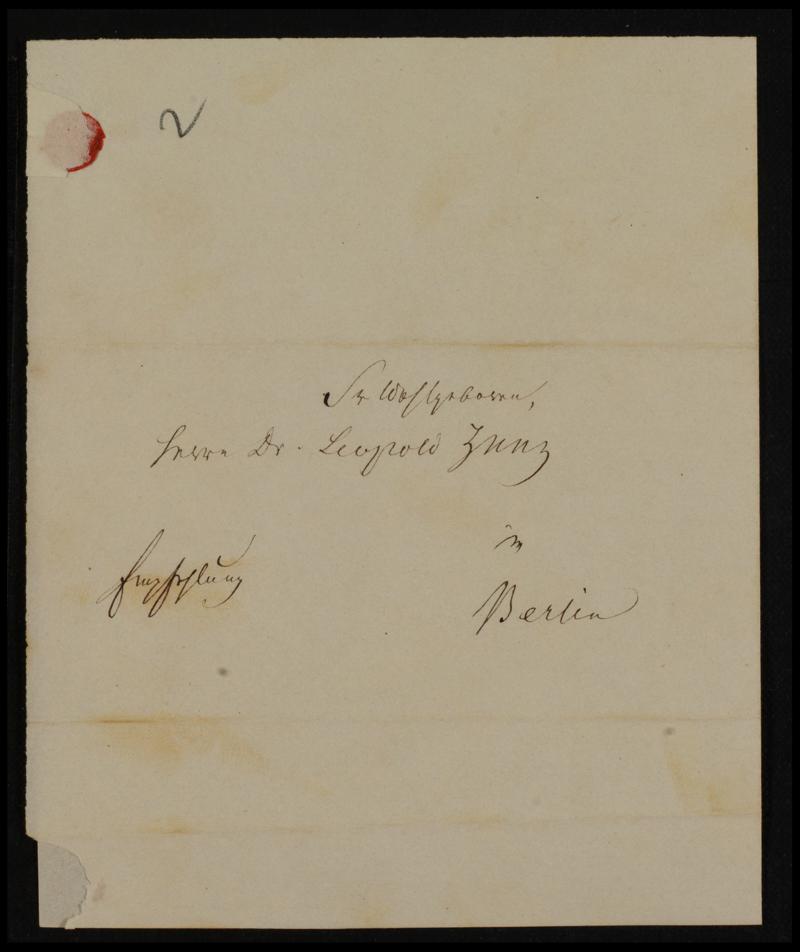 2
Sr Wohlgeboren,
Herrn Dr. Leopold Zunz
in
Empfehlung
Berlin